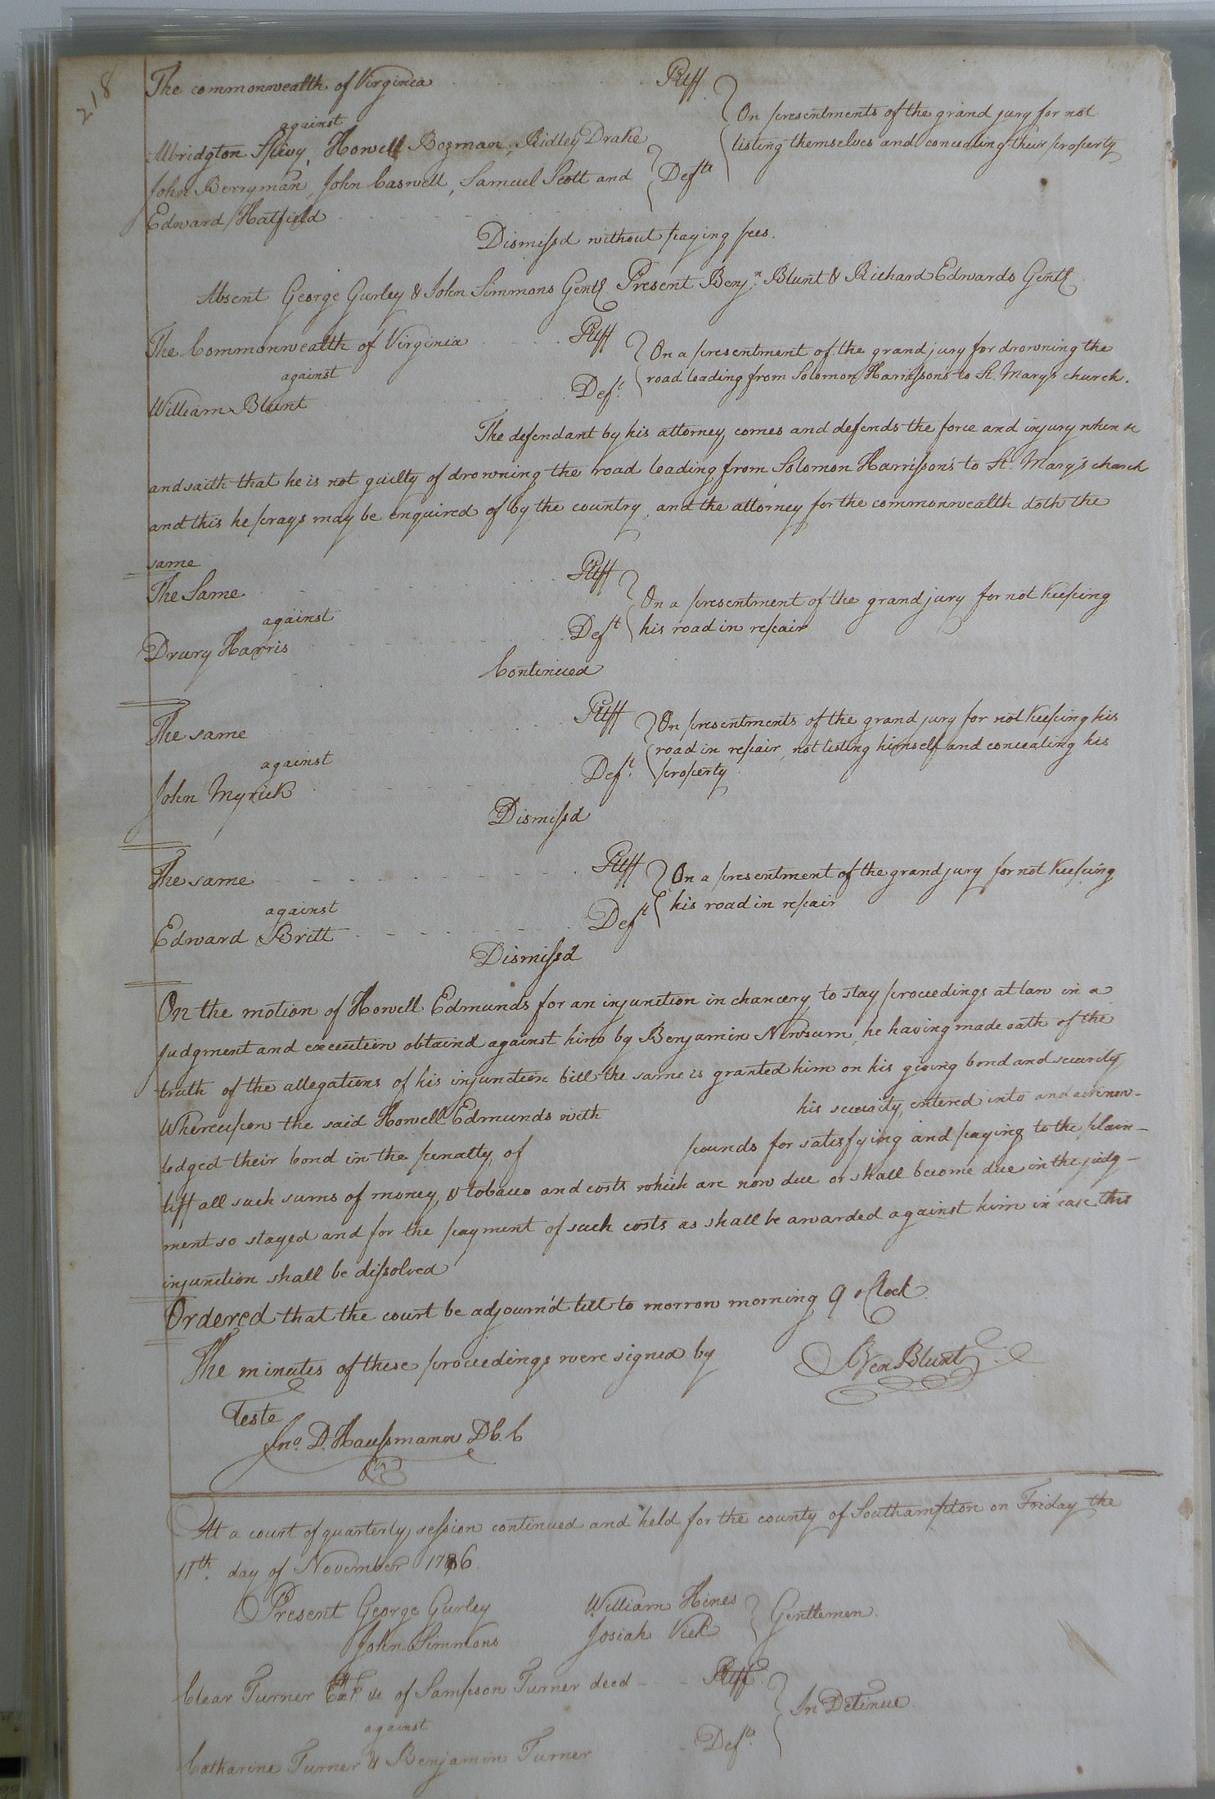 218
The commonwealth of Virginia Pltff
against
Abridgton Spivy, Howell Bozman, Ridley Drake
John Berryman, John Caswell, Samuel Scott and Defts
Edward Hatfield
On presentments of the grand jury for not
listing themselves and concealing their property
Dismissd without paying fees.
Absent George Gurley & John Simmons Gentl Present Benjn. Blunt & Richard Edwards Gentl
The Commonwealth of Virginia Pltff
against
William Blunt Deft.
On a presentment of the grand jury for drowning the
road leading from Solomon Harrissons to St. Mary's church.
The defendant by his attorney comes and defends the force and injury when &
and saith that he is not guilty of drowning the road leading from Solomon Harrisson's to St. Mary's church
and this he prays may be enquired of by the country, and the attorney for the commonwealth doth the
same
The Same Pltff
against
Drury Harris Deft
On a presentment of the grand jury for not keeping
his road in repair
Continued
The same Pltff
against
John Myrick Deft.
On presentments of the grand jury for not keeping his
road in repair, not listing himself and concealing his
property
Dismissd
The same Pltff
against
Edward Britt Deft
On a presentment of the grand jury for not keeping
his road in repair
Dismissd
On the motion of Howell Edmunds for an injunction in chancery to stay proceedings at law in a
judgment and execution obtaind against him by Benjamin Newsum, he having made oath of the
truth of the allegations of his injunction bill the same is granted him on his giving bond and security
Whereupon the said Howell Edmunds with his security entered into and acknow-
ledged their bond in the penalty of pounds for satisfying and paying to the plain-
tiff all such sums of money, & tobacco and costs which are now due or shall become due in the judg-
ment so stayed and for the payment of such costs as shall be awarded against him in case this
injunction shall be dissolved
Ordered that the court be adjourn'd till to morrow morning 9 o Clock
The minutes of these proceedings were signed by Ben Blunt
Teste
Jno. D. Haussmann D C. C
At a court of quarterly session continued and held for the county of Southampton on Friday the
11th. day of November 1786.
Present George Gurley William Hines
John Simmons Josiah Vick Gentlemen.
Clear Turner of Sampson Turner decd Pltff.
against
Catharine Turner & Benjamin Turner Defts.
In Detinue